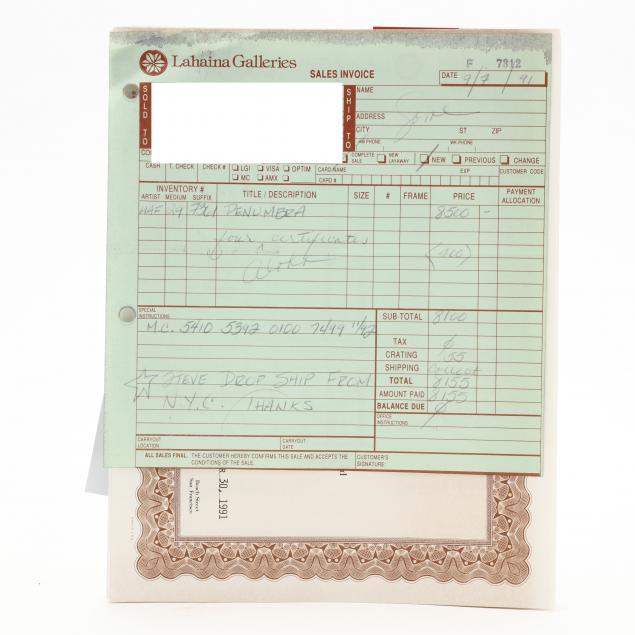 Lahaina Galleries
SALES INVOICE
F 7312
DATE 9/7/91
SOLD TO
SHIP TO
NAME
ADDRESS
CITY ST ZIP
HM PHONE WK PHONE
COMPLETE SALE NEW LAYAWAY NEW PREVIOUS CHANGE
CASH T. CHECK CHECK # LGI VISA OPTIM CARD NAME EXP CUSTOMER CODE
MC AMX CARD #
INVENTORY # TITLE / DESCRIPTION SIZE # FRAME PRICE PAYMENT ALLOCATION
ARTIST MEDIUM SUFFIX
PENUMBRA 8500 -
four certificates
Aloha (400)
SPECIAL INSTRUCTIONS
M.C. 5410 5392 0100 7499 11/92
STEVE DROP SHIP FROM
N.Y.C. THANKS
SUB-TOTAL 8100
TAX ∅
CRATING 55
SHIPPING COLLECT
TOTAL 8155
AMOUNT PAID 8155
BALANCE DUE ∅
OFFICE INSTRUCTIONS
CARRYOUT LOCATION CARRYOUT DATE
ALL SALES FINAL. THE CUSTOMER HEREBY CONFIRMS THIS SALE AND ACCEPTS THE CONDITIONS OF THE SALE.
CUSTOMER'S SIGNATURE
30, 1991
Beach Street
San Francisco